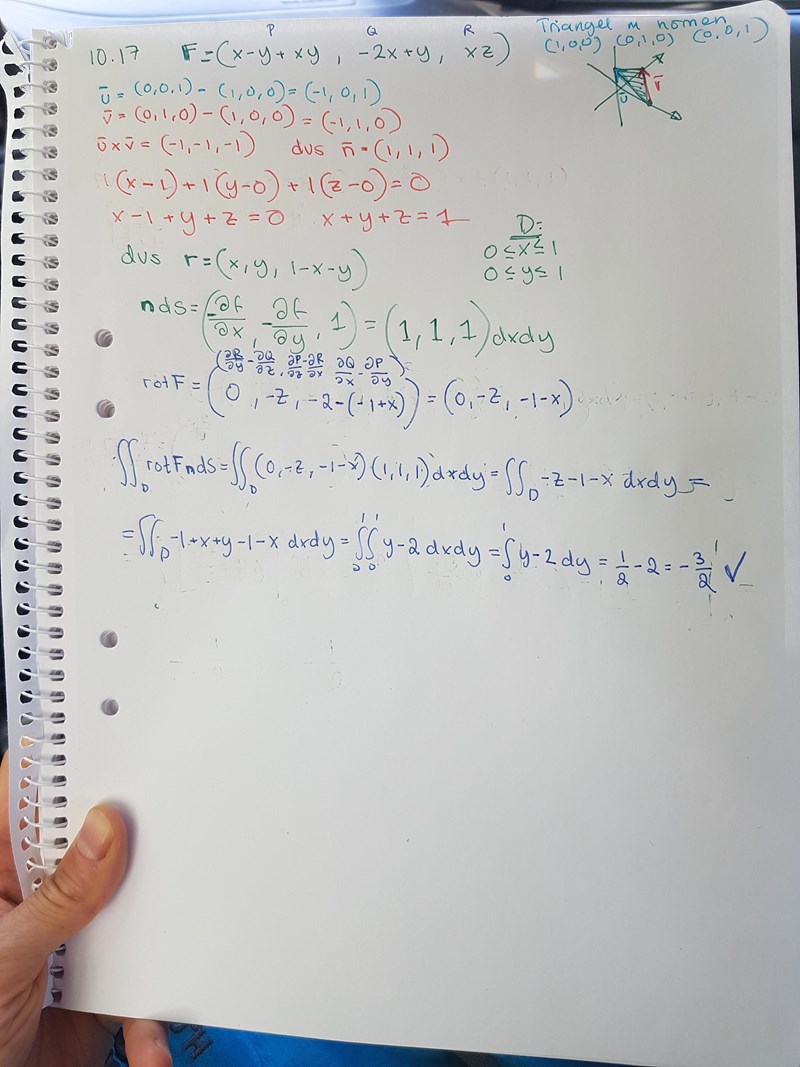 P Q R
10.17 F=(x-y+xy, -2x+y, xz)
Triangel m hörnen
(1,0,0) (0,1,0) (0,0,1)
ū = (0,0,1) - (1,0,0) = (-1,0,1)
v̄ = (0,1,0) - (1,0,0) = (-1,1,0)
ū×v̄ = (-1,-1,-1) dvs n̄=(1,1,1)
1(x-1)+1(y-0)+1(z-0)=0
x-1+y+z=0 x+y+z=1
D:
0≤x≤1
0≤y≤1
dvs r=(x,y,1-x-y)
ndS=(-∂f/∂x, -∂f/∂y, 1) = (1,1,1)dxdy
(∂R/∂y-∂Q/∂z, ∂P/∂z-∂R/∂x, ∂Q/∂x-∂P/∂y)=
rotF = (0, -z, -2-(-1+x)) = (0,-z,-1-x)
∬_D rotFndS=∬_D (0,-z,-1-x)(1,1,1)dxdy=∬_D -z-1-x dxdy =
=∬_D -1+x+y-1-x dxdy = ∫₀¹∫₀¹ y-2 dxdy = ∫₀¹ y-2 dy = 1/2 -2 = -3/2 ✓
ū v̄